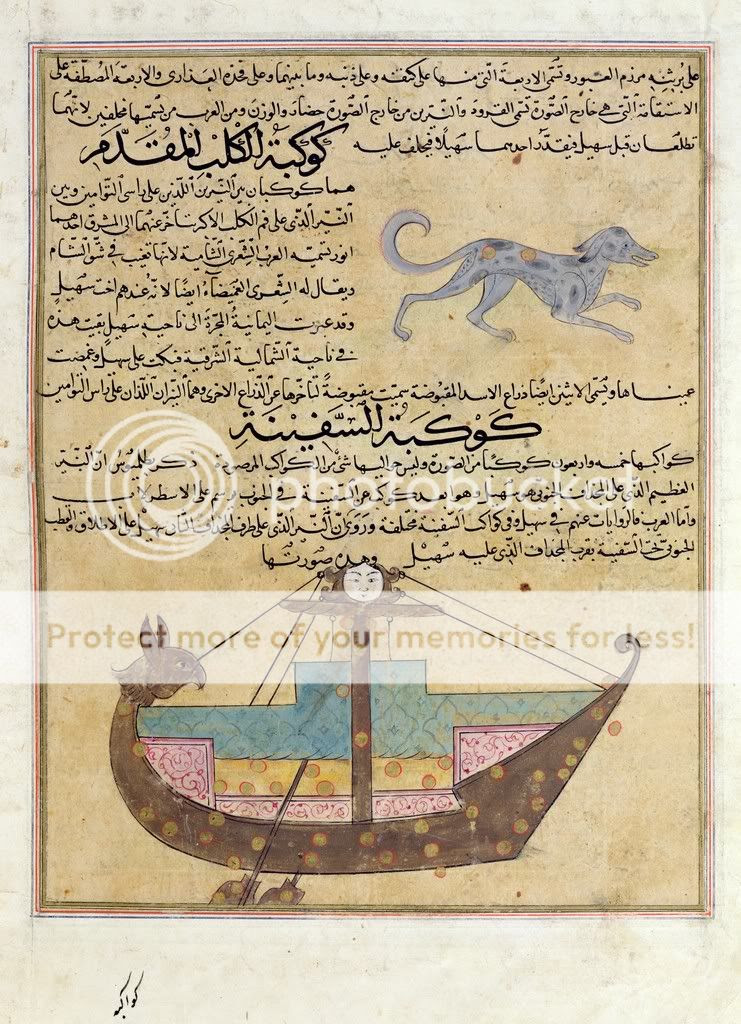 على برثنه مرزم العبور وتسمى الاربعة التى منها على كتفه وعلى ذنبه وما بينهما وعلى فخذه العذارى والاربعة المصطفة على
الاستقامة التى هى خارج الصورة تسمى القرود والنيرين من خارج الصورة حضار والوزن ومن العرب من يسميهما محلفين لانهما
تطلعان قبل سهيل فيقدر احدهما سهيلا فيحلف عليه
كوكبة الكلب المقدم
هما كوكبان بين النيرين اللذين على راسى التوامين وبين
النير الذى على فم الكلب الاكبر تاخر عنهما الى المشرق احدهما
انور تسميه العرب الشعرى الشامية لانها تغيب فى شق الشام
ويقال له الشعرى الغميصاء ايضا لانه عندهم اخت سهيل
وقد عبرت اليمانية المجرة الى ناحية سهيل بقيت هذه
فى ناحية الشمالية الشرقية فبكت على سهيل وغمصت
عيناها ويسمى الاثنين ايضا ذراع الاسد المقبوضة سميت مقبوضة لتاخرها عن الذراع الاخرى وهما النيران اللذان على راس التوامين
كوكبة السفينة
كواكبها خمسه واربعون كوكبا من الصورة وليس حواليها شئ من الكواكب المرصودة ذكر بطلميوس ان النير
العظيم الذى على المجداف الجنوبى هو سهيل وهو ابعد كوكب عن السفينة فى الجنوب يرسم على الاسطرلاب
واما العرب فالروايات عنهم فى سهيل وفى كواكب السفينة مختلفة وروى ان النير الذى على طرف المجداف الثانى سهيل على الاطلاق والقطب
الجنوبى تحت السفينة بقرب المجداف الذى عليه سهيل وهذه صورتها
photobucket
Protect more of your memories for less!
كواكبه